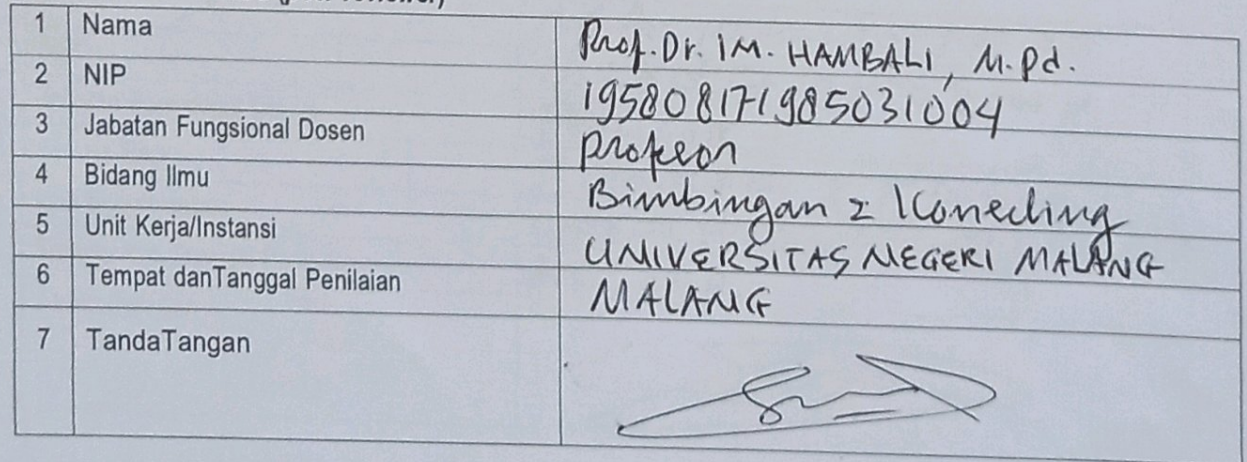 1 Nama Prof. Dr. IM. HAMBALI, M.Pd.
2 NIP 195808171985031004
3 Jabatan Fungsional Dosen Profesor
4 Bidang Ilmu Bimbingan & Konseling
5 Unit Kerja/Instansi UNIVERSITAS NEGERI MALANG
6 Tempat danTanggal Penilaian MALANG
7 TandaTangan